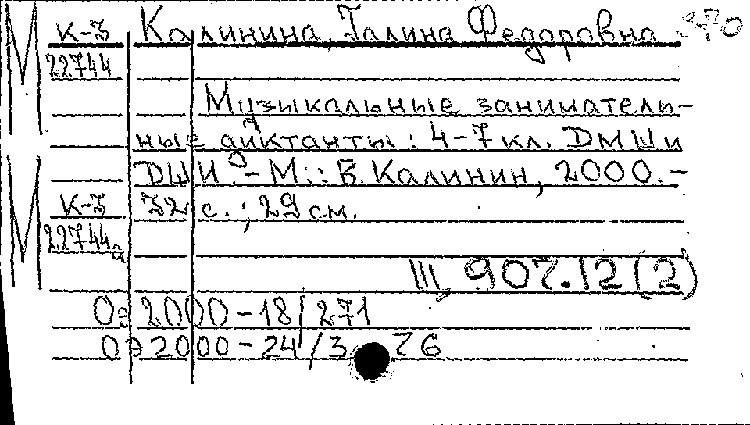 М К-3 Калинина, Галина Федоровна
22744
Музыкальные заниматель-
ные диктанты: 4-7 кл. ДМШ и
ДШИ. - М.: В. Калинин, 2000. -
М К-3 32 с.; 29 см.
22744а
III, 907.12(2)
2000-18/271
2000-24/3 76